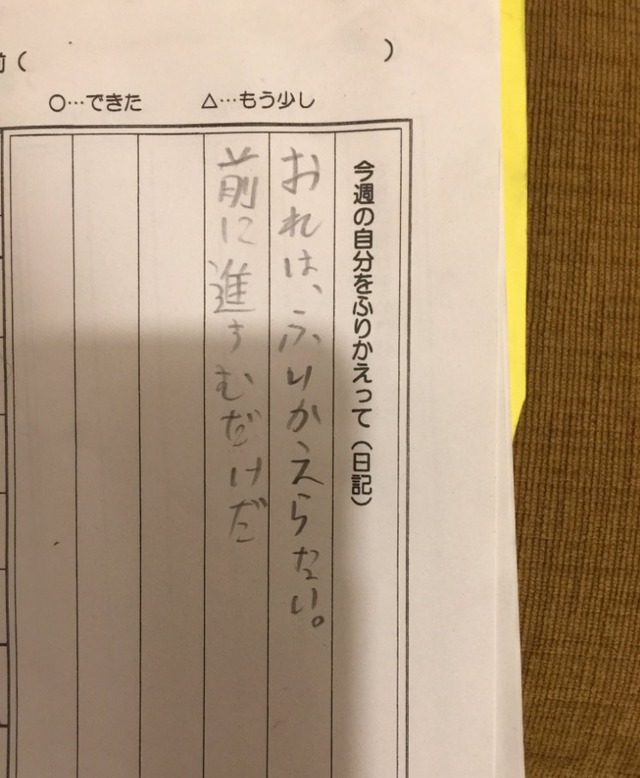 前（　　　）
○…できた　△…もう少し
今週の自分をふりかえって（日記）
おれは、ふりかえらない。
前に進すむだけだ